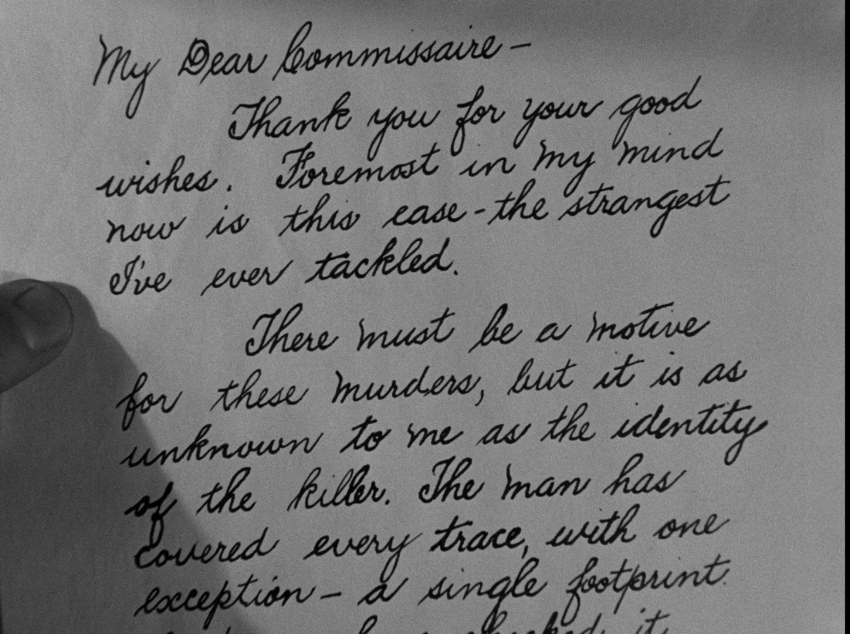 My Dear Commissaire –
Thank you for your good
wishes. Foremost in my mind
now is this case - the strangest
I've ever tackled.
There must be a motive
for these murders, but it is as
unknown to me as the identity
of the killer. The man has
covered every trace, with one
exception – a single footprint.
checked it